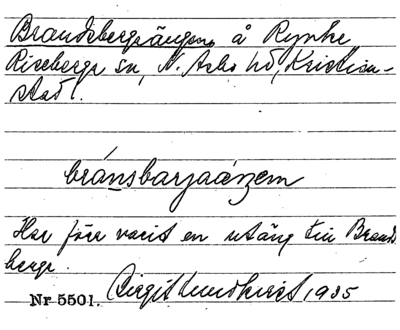 Brandsbergsängen, å Rynke
Riseberga sn, N. Åsbo hd, Kristian-
stad l.
bránsbarjaáŋem
Har förr varit en utäng till Brands
berga.
Nr 5501. Birgit Lundkvist 1935